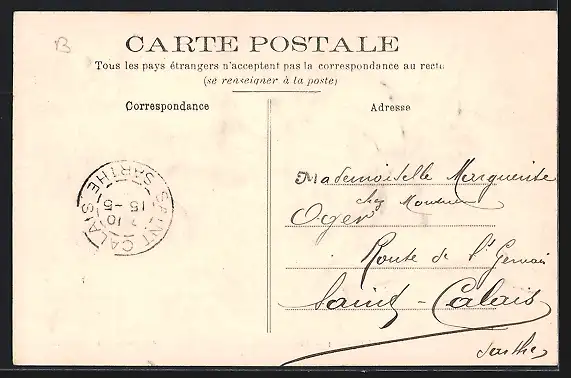 B
CARTE POSTALE
Tous les pays étrangers n'acceptent pas la correspondance au recto
(se renseigner à la poste)
Correspondance
Adresse
Mademoiselle Marguerite
chez Monsieur
Oger
Route de St Germain
Saint-Calais
Sarthe
SAINT CALAIS
SARTHE
15 -5
10